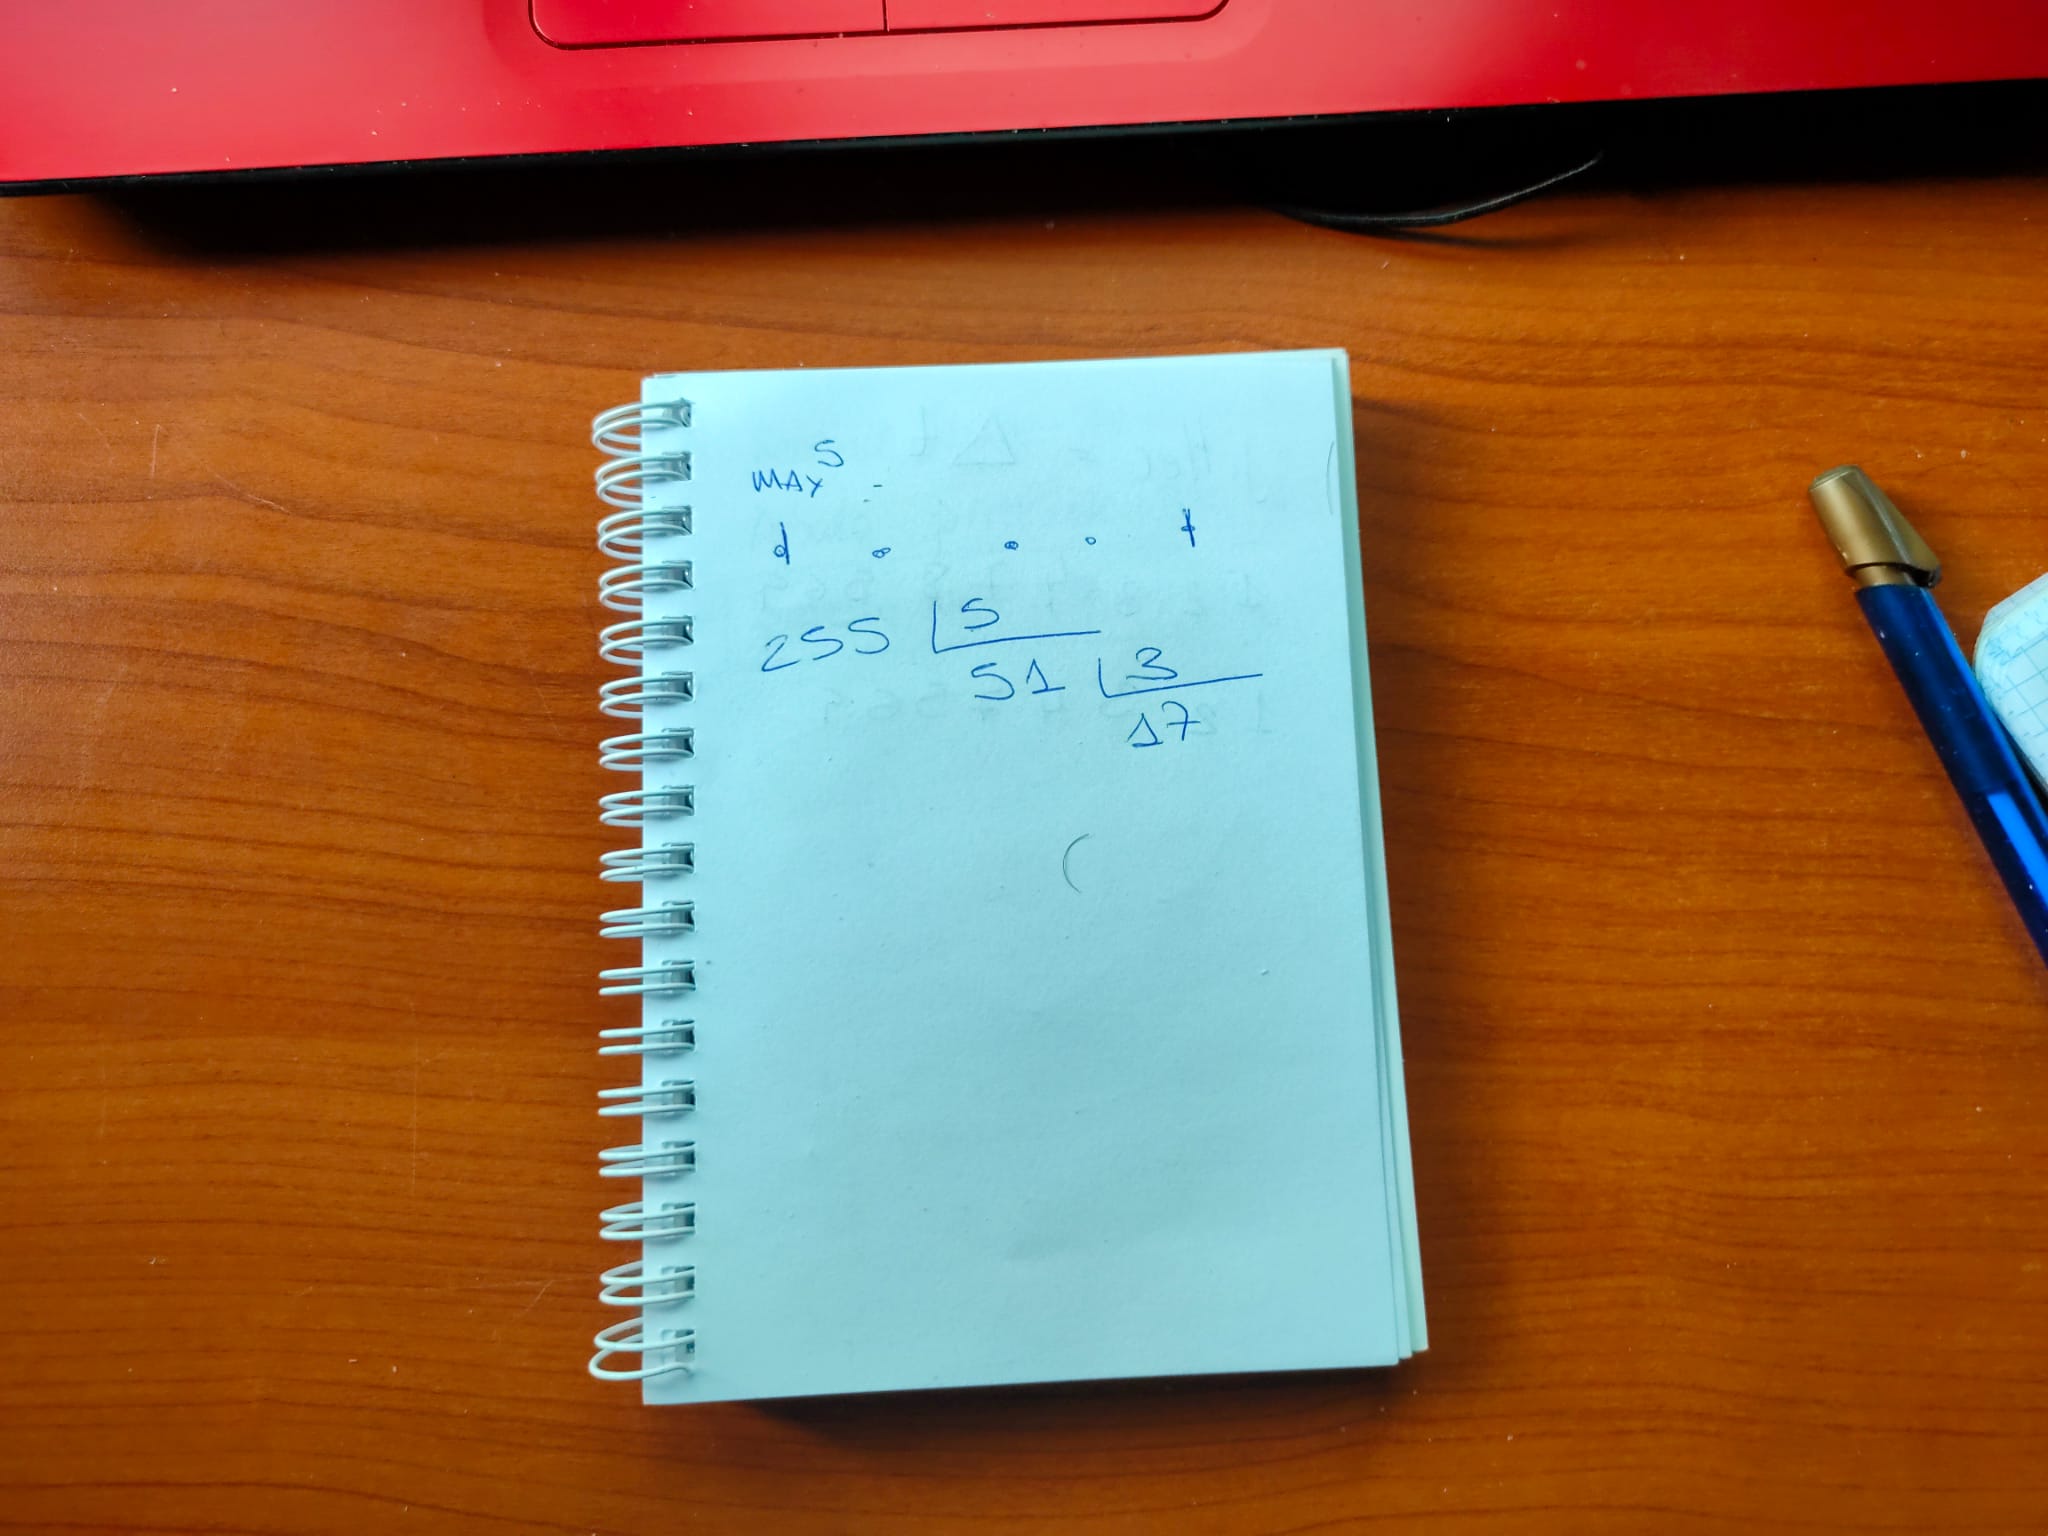 MAX 5
255 5
51 3
17